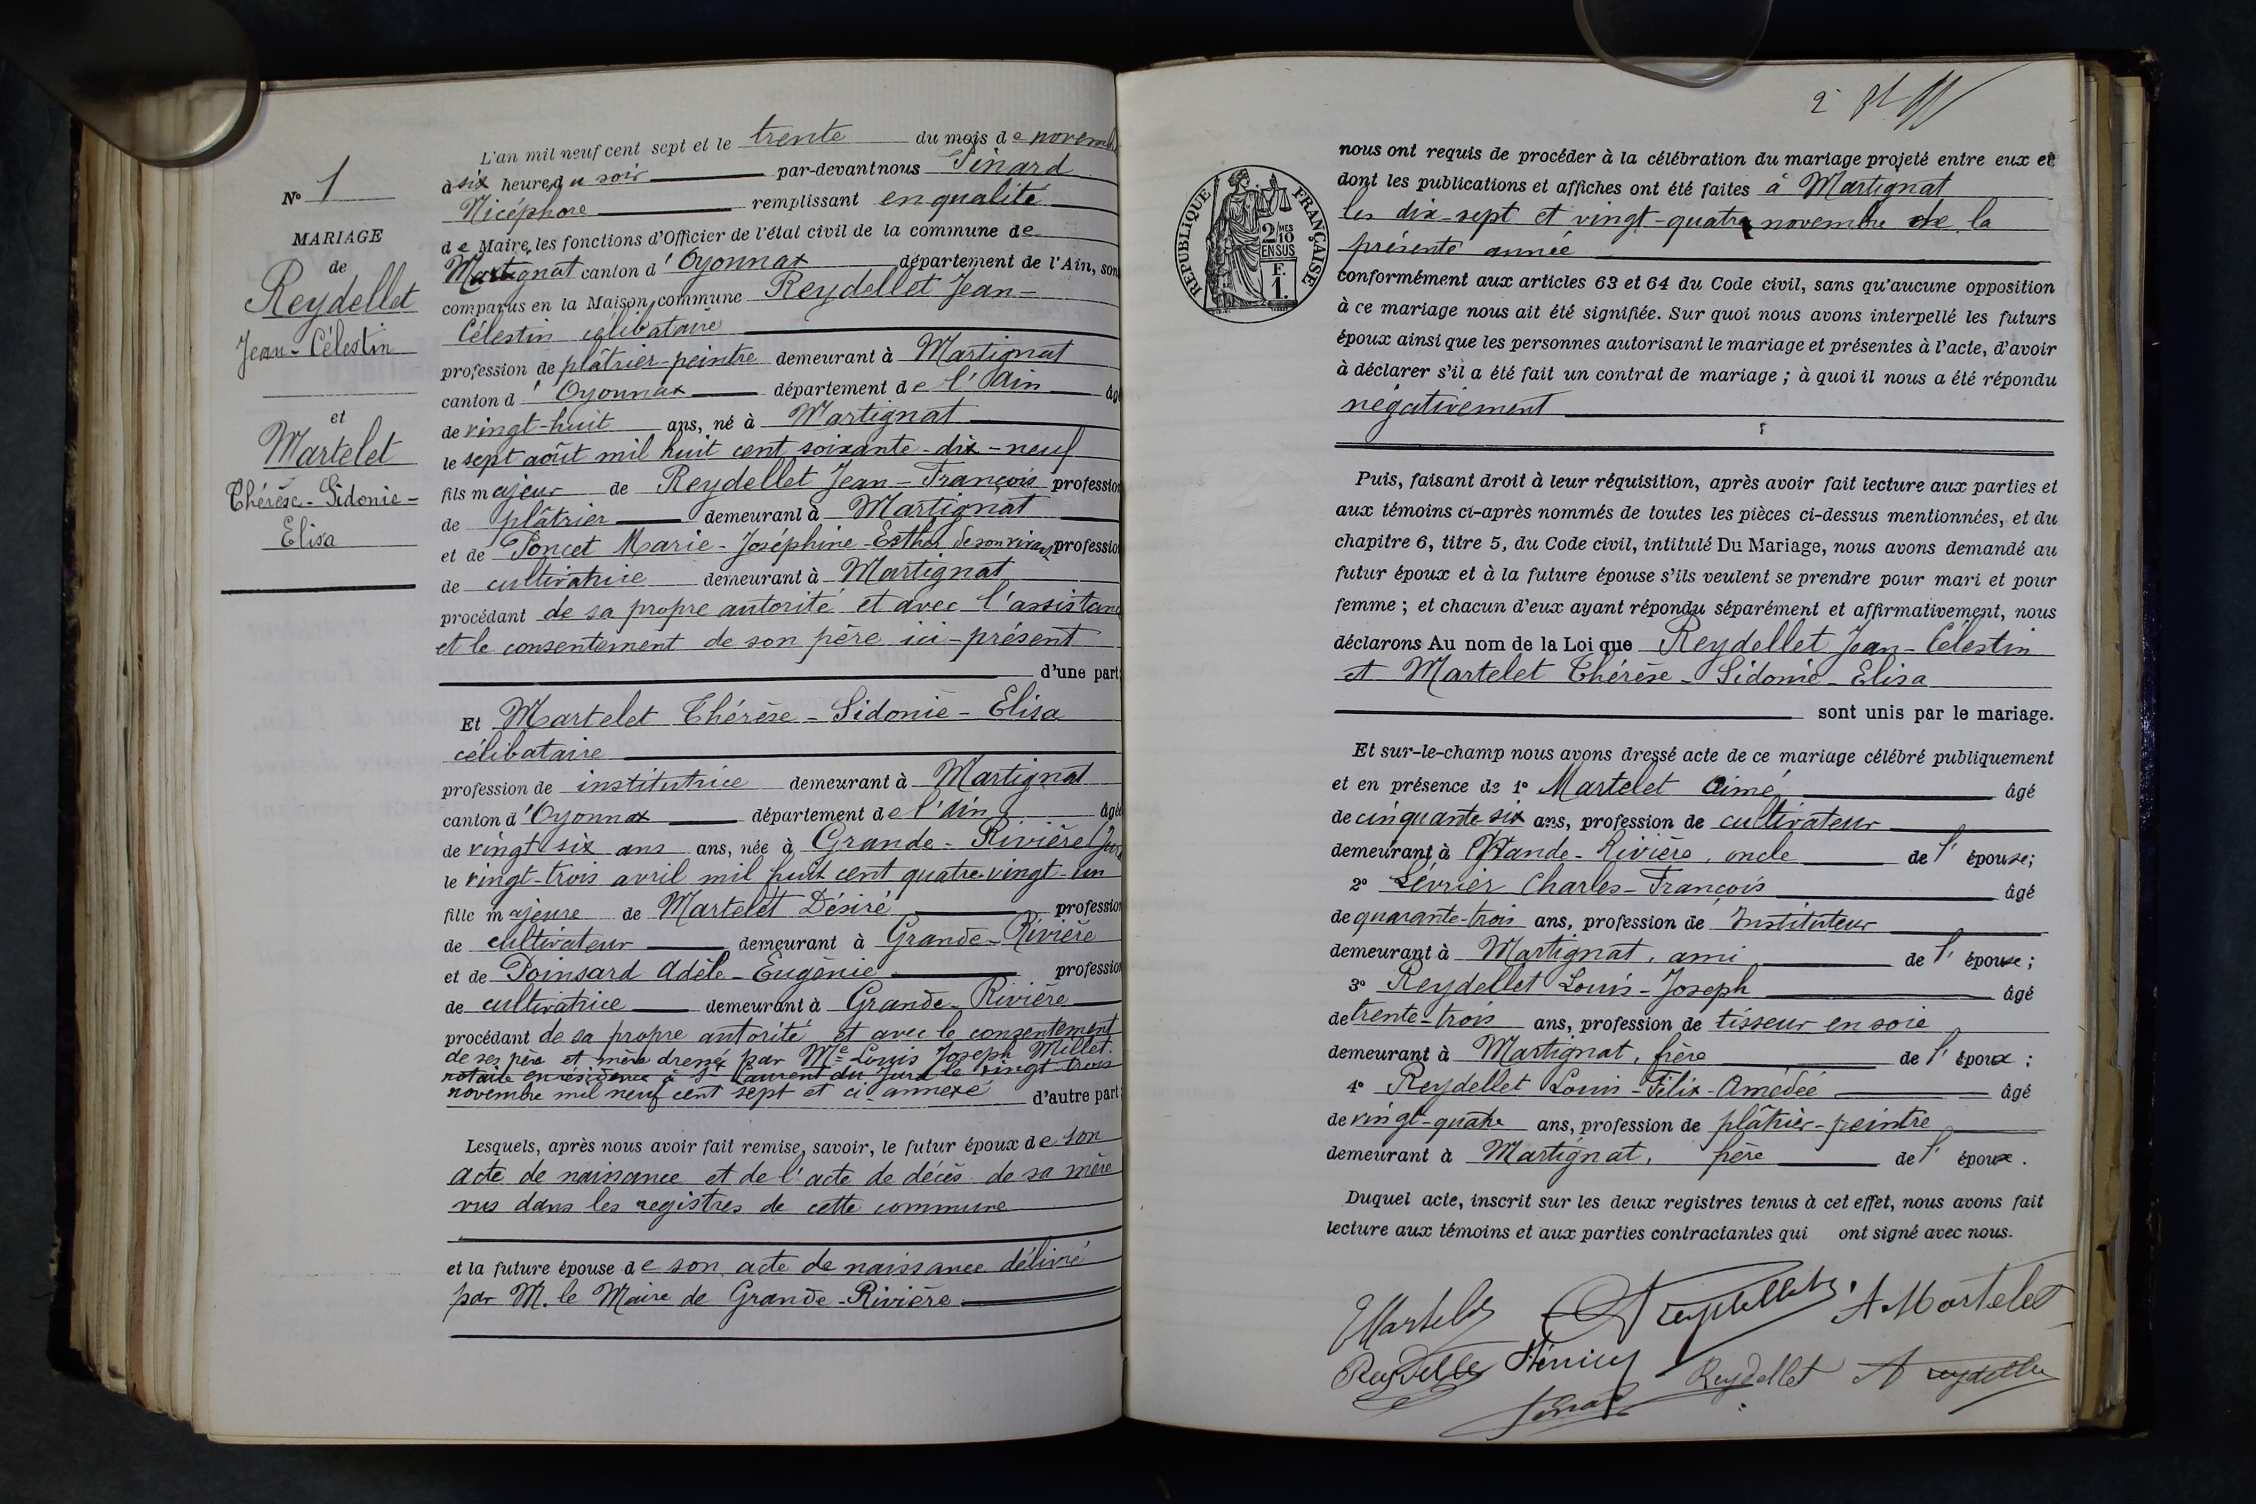 N° 1
MARIAGE
de
Reydellet
Jean-Célestin
et
Martelet
Thérèse-Sidonie-
Elisa
L'an mil neuf cent sept et le trente du mois de novembre
à six heures du soir par-devant nous Sinard
Nicéphore remplissant en qualité
de Maire, les fonctions d'Officier de l'état civil de la commune de
Martignat canton d'Oyonnax département de l'Ain, son
comparus en la Maison commune Reydellet Jean-
Célestin célibataire
profession de plâtrier-peintre demeurant à Martignat
canton d'Oyonnax département de l'Ain âgé
de vingt-huit ans, né à Martignat
le sept août mil huit cent soixante-dix-neuf
fils majeur de Reydellet Jean-François profession
de plâtrier demeurant à Martignat
et de Poncet Marie-Joséphine-Esther de son vivant profession
de cultivatrice demeurant à Martignat
procédant de sa propre autorité et avec l'assistance
et le consentement de son père ici-présent
d'une part;
Et Martelet Thérèse-Sidonie-Elisa
célibataire
profession de institutrice demeurant à Martignat
canton d'Oyonnax département de l'Ain âgée
de vingt six ans ans, née à Grande-Rivière (Jura
le vingt-trois avril mil huit cent quatre vingt-un
fille majeure de Martelet Désiré profession
de cultivateur demeurant à Grande-Rivière
et de Poinsard Adèle-Eugénie profession
de cultivatrice demeurant à Grande-Rivière
procédant de sa propre autorité et avec le consentement
de ses père et mère dressé par Me Louis Joseph Millet
notaire en résidence à St Laurent du Jura le vingt trois
novembre mil neuf cent sept et ci-annexé d'autre part;
Lesquels, après nous avoir fait remise, savoir, le futur époux de son
acte de naissance et de l'acte de décès de sa mère
vus dans les registres de cette commune
et la future épouse de son acte de naissance délivré
par M. le Maire de Grande-Rivière
RÉPUBLIQUE FRANÇAISE
2/MES
10
EN SUS
F.
1.
nous ont requis de procéder à la célébration du mariage projeté entre eux et
dont les publications et affiches ont été faites à Martignat
les dix-sept et vingt-quatre novembre de la
présente année
conformément aux articles 63 et 64 du Code civil, sans qu'aucune opposition
à ce mariage nous ait été signifiée. Sur quoi nous avons interpellé les futurs
époux ainsi que les personnes autorisant le mariage et présentes à l'acte, d'avoir
à déclarer s'il a été fait un contrat de mariage ; à quoi il nous a été répondu
négativement
Puis, faisant droit à leur réquisition, après avoir fait lecture aux parties et
aux témoins ci-après nommés de toutes les pièces ci-dessus mentionnées, et du
chapitre 6, titre 5, du Code civil, intitulé Du Mariage, nous avons demandé au
futur époux et à la future épouse s'ils veulent se prendre pour mari et pour
femme ; et chacun d'eux ayant répondu séparément et affirmativement, nous
déclarons Au nom de la Loi que Reydellet Jean-Célestin
et Martelet Thérèse-Sidonie-Elisa
sont unis par le mariage.
Et sur-le-champ nous avons dressé acte de ce mariage célébré publiquement
et en présence de 1° Martelet Aimé âgé
de cinquante six ans, profession de cultivateur
demeurant à Grande-Rivière, oncle de l'épouse;
2° Lévrier Charles-François âgé
de quarante-trois ans, profession de Instituteur
demeurant à Martignat, ami de l'épouse;
3° Reydellet Louis-Joseph âgé
de trente-trois ans, profession de tisseur en soie
demeurant à Martignat, frère de l'époux;
4° Reydellet Louis-Félix-Amédée âgé
de vingt-quatre ans, profession de plâtrier-peintre
demeurant à Martignat, frère de l'époux.
Duquel acte, inscrit sur les deux registres tenus à cet effet, nous avons fait
lecture aux témoins et aux parties contractantes qui ont signé avec nous.
EMartelet Reydellet A Martelet
Reydellet Reydellet A Reydellet
Sinard